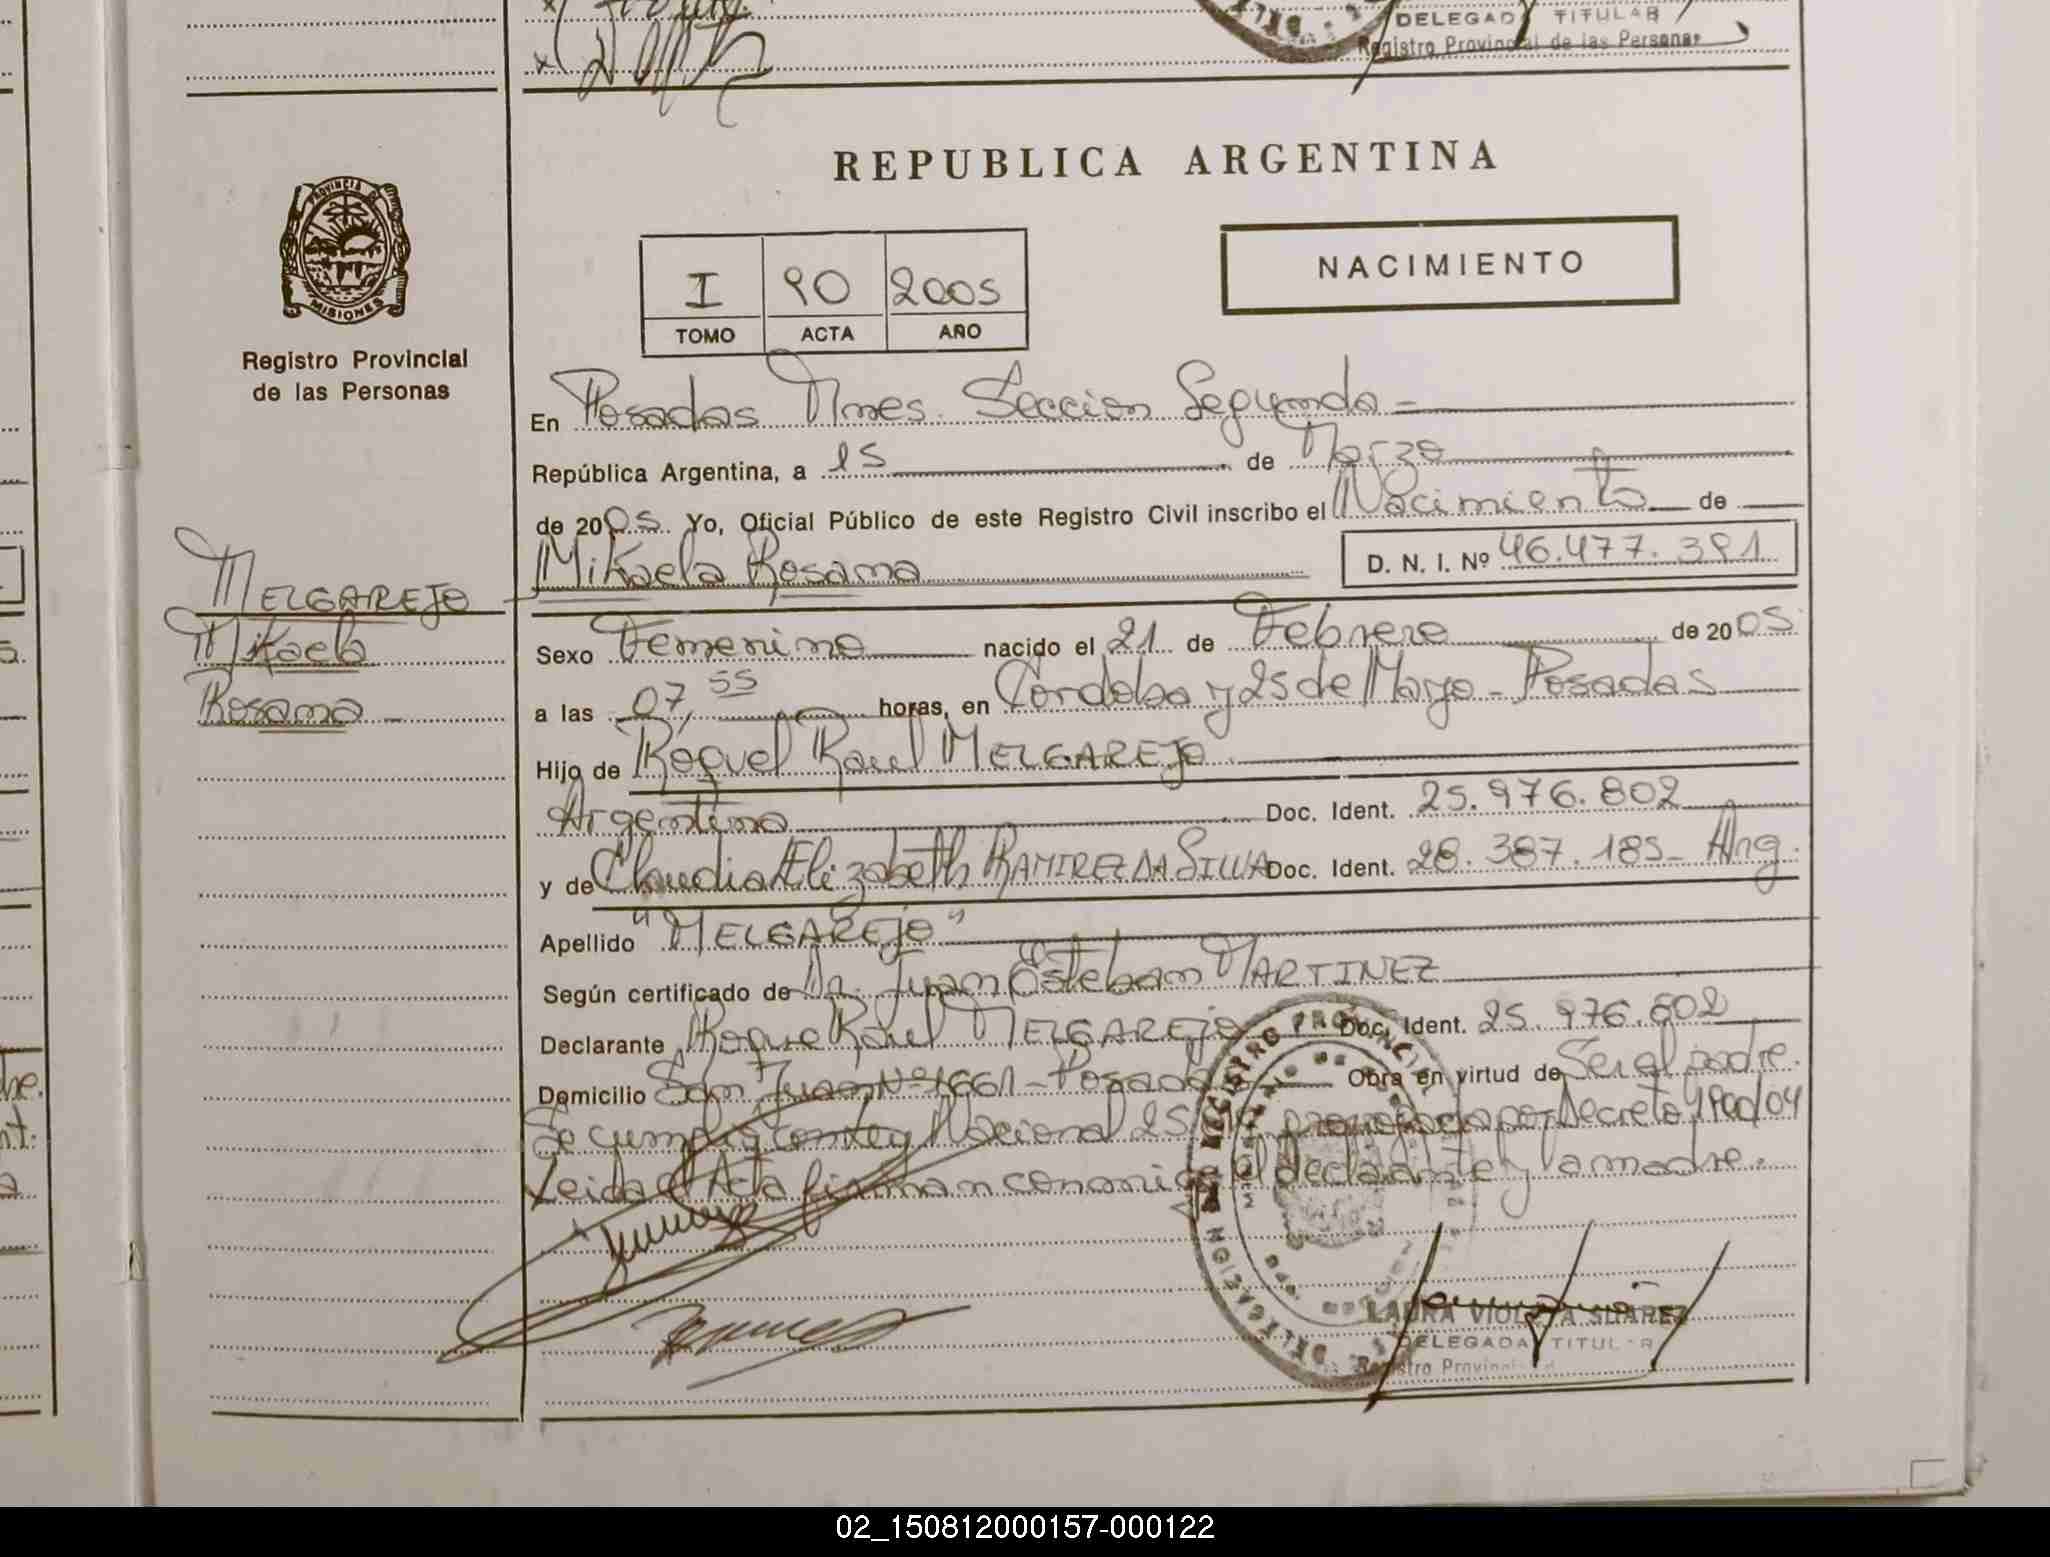 DELEGADA TITULAR
Registro Provincial de las Personas
REPUBLICA ARGENTINA
PROVINCIA DE
MISIONES
Registro Provincial
de las Personas
I 90 2005
TOMO ACTA AÑO
NACIMIENTO
En Posadas Mnes. Seccion Segunda
República Argentina, a 15 de Marzo
de 2005. Yo, Oficial Público de este Registro Civil inscribo el Nacimiento de
Mikaela Rosana D. N. I. Nº 46.477.391
MELGAREJO
Mikaela
Rosana
Sexo Femenino nacido el 21 de Febrero de 2005
a las 07,55 horas, en Cordoba y 25 de Mayo - Posadas
Hijo de Roquel Raul MELGAREJO
Argentino Doc. Ident. 25.976.802
y de Claudia Elizabeth RAMIREZ DA SILVA Doc. Ident. 28.387.185- Arg.
Apellido "MELGAREJO"
Según certificado de Dr. Juan Esteban MARTINEZ
Declarante Roque Raul MELGAREJO Doc. Ident. 25.976.802
Domicilio San Juan Nº 1661 - Posadas Obra en virtud de Ser el padre.
Se cumple con Ley Nacional por Decreto
Leida el Acta firman conmigo el declarante y la madre.
REGISTRO PROVINCIAL
LAURA VIOLETA SUAREZ
DELEGADA TITULAR
Registro Provincial d
02_150812000157-000122